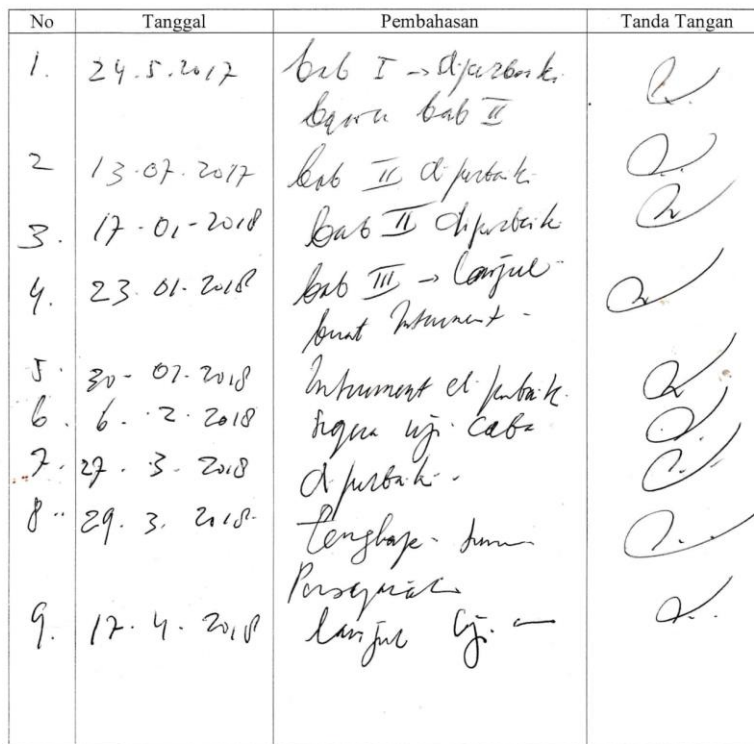 No Tanggal Pembahasan Tanda Tangan
1. 24.5.2017 bab I → diperbaiki
bab II
2 13.07.2017 bab II diperbaik
3. 17-01-2018 bab II diperbaik
4. 23.01.2018 bab III → lanjut
buat Instrument -
5. 30-01-2018 Instrument diperbaik
6. 6.2.2018 segera uji coba
7. 27.3.2018 diperbaiki -
8.. 29.3.2018. Lengkapi
9. 17.4.2018 lanjut uji